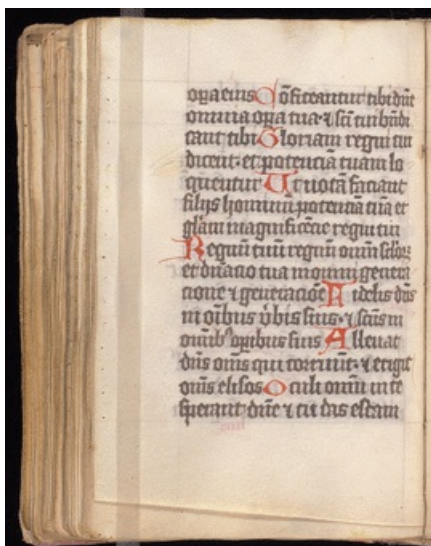 op̄a eius Cōfiteantur tibi dn̄e
omnia op̄a tua ⁊ sc̄i tui bn̄di
cant tibi Gloriam regni tui
dicent · et potenciā tuam lo
quentur Ut notā faciant
filijs hominū potenciā tuā et
gl̄am magnificēcie regni tui
Regnū tuū regnū om̄m sc̄loꝝ
et dn̄acio tua in omni genera
cione ⁊ generacioē Fidelis dn̄s
in oībus v̄bis suis · ⁊ sc̄us in
omīb⁹ op̄ibus suis Alleuat
dn̄s om̄s qui corruūt · ⁊ erigit
om̄s elisos Oculi om̄iū in te
sperant dn̄e ⁊ tu das escam